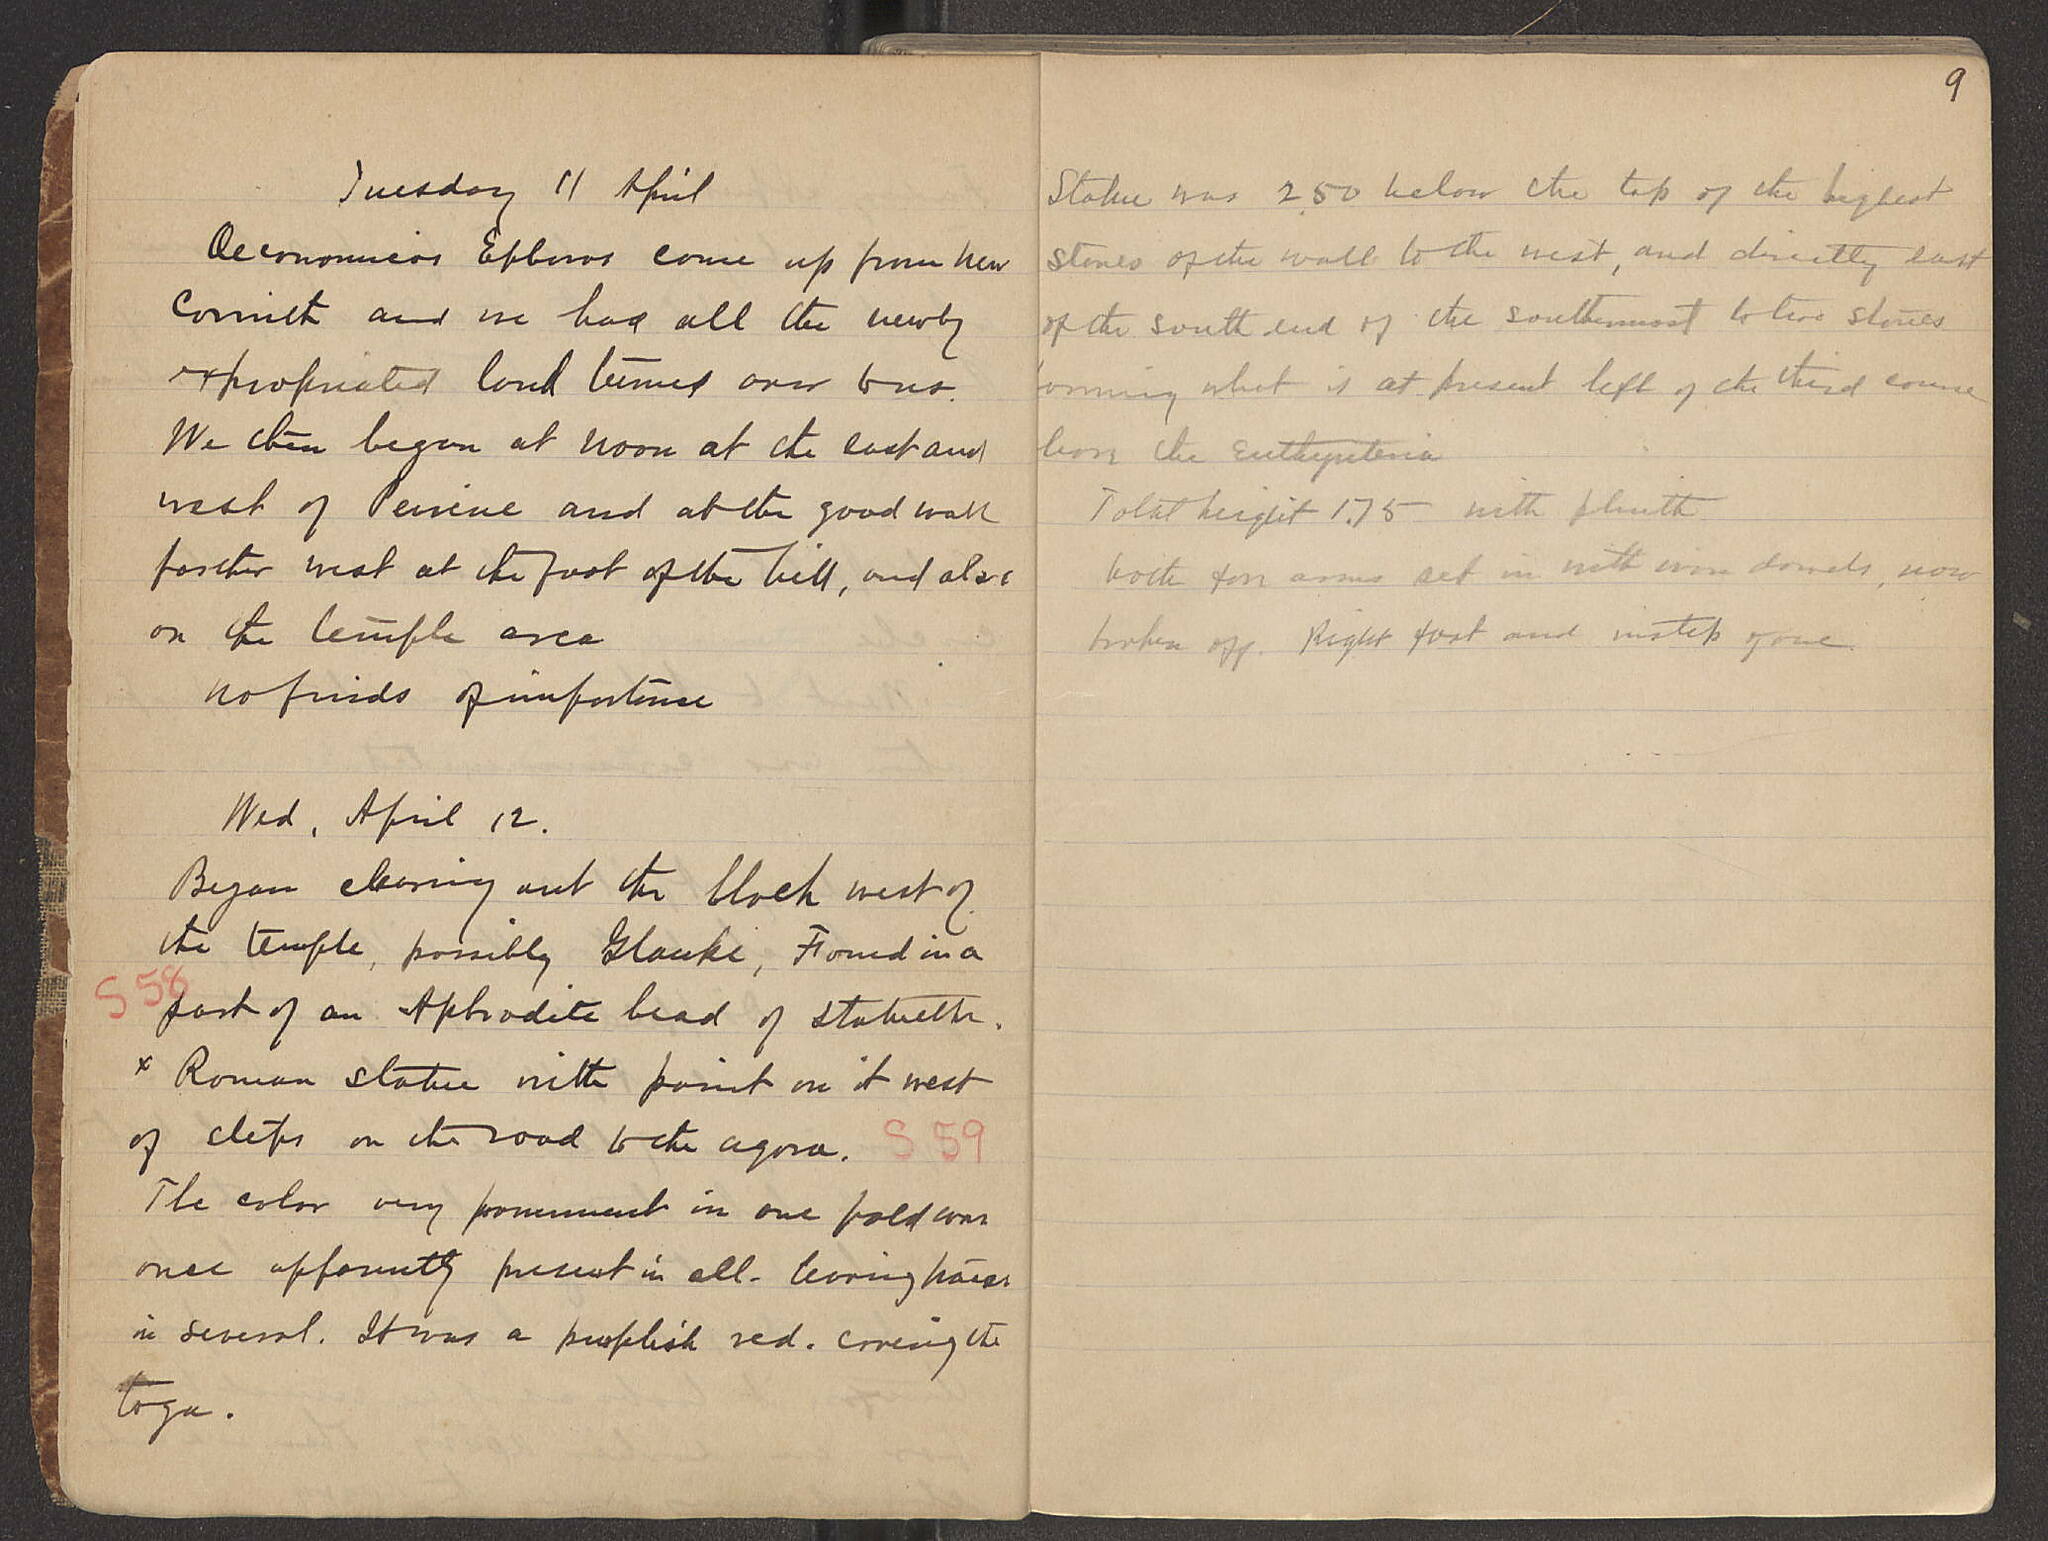 Tuesday 11 April
Oeconomicos Ephoros came up from New
Corinth and we had all the newly
expropriated land turned over to us.
We then began at noon at the east and
west of Peirene and at the good wall
farther west at the foot of the hill, and also
on the temple area
No finds of importance
Wed, April 12.
Began clearing out the block west of
the temple, possibly Glauke, Found in a
S 58
part of an Aphrodite head of statuette.
x Roman statue with paint on it west
of steps on the road to the agora. S 59
The color very prominent in one fold was
once apparently present in all - leaving traces
in several. It was a purplish red. covering the
toga.
9
Statue was 2.50 below the top of the highest
stones of the wall to the west, and directly east
of the south end of the southernmost two stones
forming what is at present left of the third course
above the Euthynteria
Total height 1.75 with plinth
both fore arms set in with iron dowels, now
broken off. Right foot and instep gone